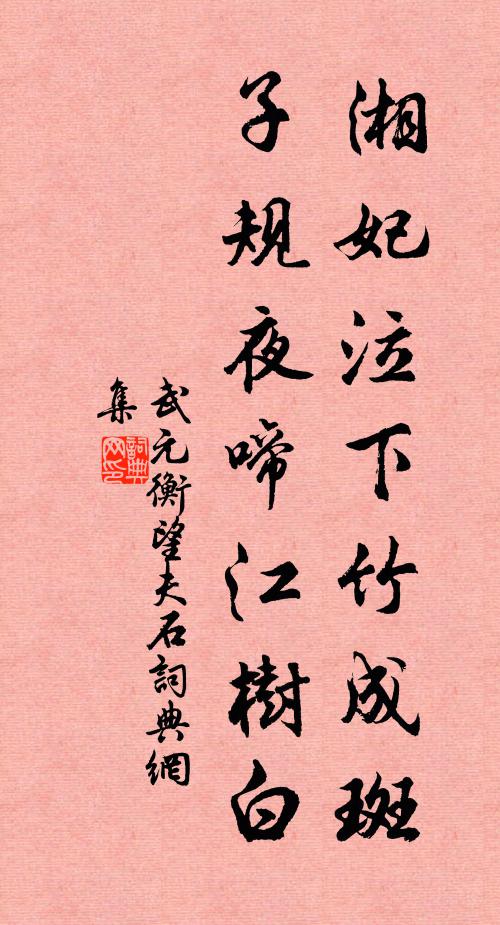 湘妃泣下竹成斑
子規夜啼江樹白
武元衡望夫石詞典網
集
詞典网印